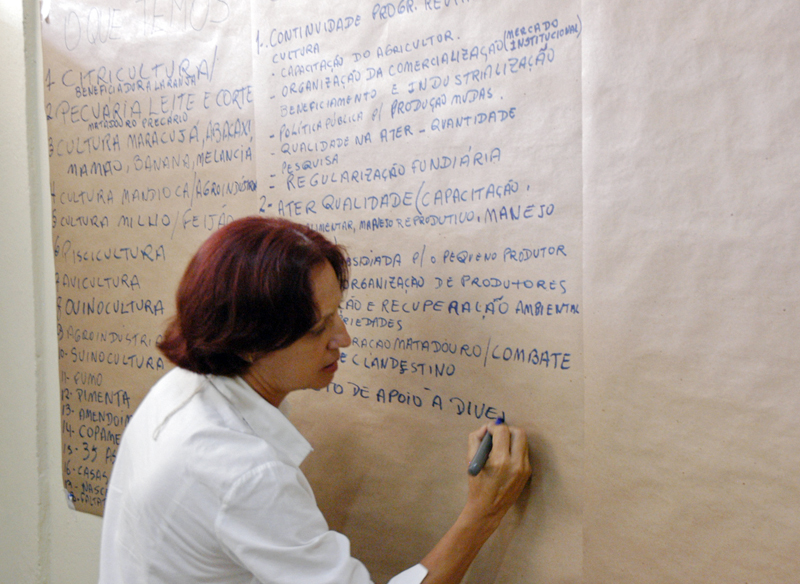 O QUE TEMOS
1 CITRICULTURA/
BENEFICIADORA LARANJA
2 PECUÁRIA LEITE E CORTE
MATADOURO PRECÁRIO
3 CULTURA MARACUJÁ, ABACAXI,
MAMÃO, BANANA, MELANCIA
4 CULTURA MANDIOCA/AGROINDÚSTRIA
5 CULTURA MILHO/FEIJÃO
6 PISCICULTURA
7 AVICULTURA
OVINOCULTURA
9 AGROINDÚSTRI
SUINOCULTURA
11- FUMO
12- PIMENTA
13- AMENDOIM
14- COPAME
15- 35 AS
16- CASAS
1- CONTINUIDADE PROGR. REVIT
CULTURA
- CAPACITAÇÃO DO AGRICULTOR.
- ORGANIZAÇÃO DA COMERCIALIZAÇÃO (MERCADO INSTITUCIONAL)
BENEFICIAMENTO E INDUSTRIALIZAÇÃO
- POLÍTICA PÚBLICA P/ PRODUÇÃO MUDAS.
- QUALIDADE NA ATER - QUANTIDADE
PESQUISA
- REGULARIZAÇÃO FUNDIÁRIA
2- ATER QUALIDADE/CAPACITAÇÃO,
IMENTAR, MANEJO REPRODUTIVO, MANEJO
SIDIADA P/ O PEQUENO PRODUTOR
ORGANIZAÇÃO DE PRODUTORES
ÇÃO E RECUPERAÇÃO AMBIENTAL
RIEDADES
RAÇÃO MATADOURO/COMBATE
E CLANDESTINO
TO DE APOIO A DIVE